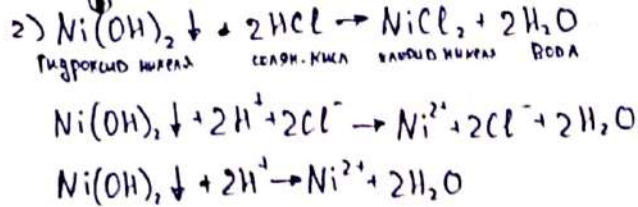 2) Ni(OH)₂↓ + 2HCl → NiCl₂ + 2H₂O
гидроксид никеля солян. кисл хлорид никеля вода
Ni(OH)₂↓ + 2H⁺ + 2Cl⁻ → Ni²⁺ + 2Cl⁻ + 2H₂O
Ni(OH)₂↓ + 2H⁺ → Ni²⁺ + 2H₂O